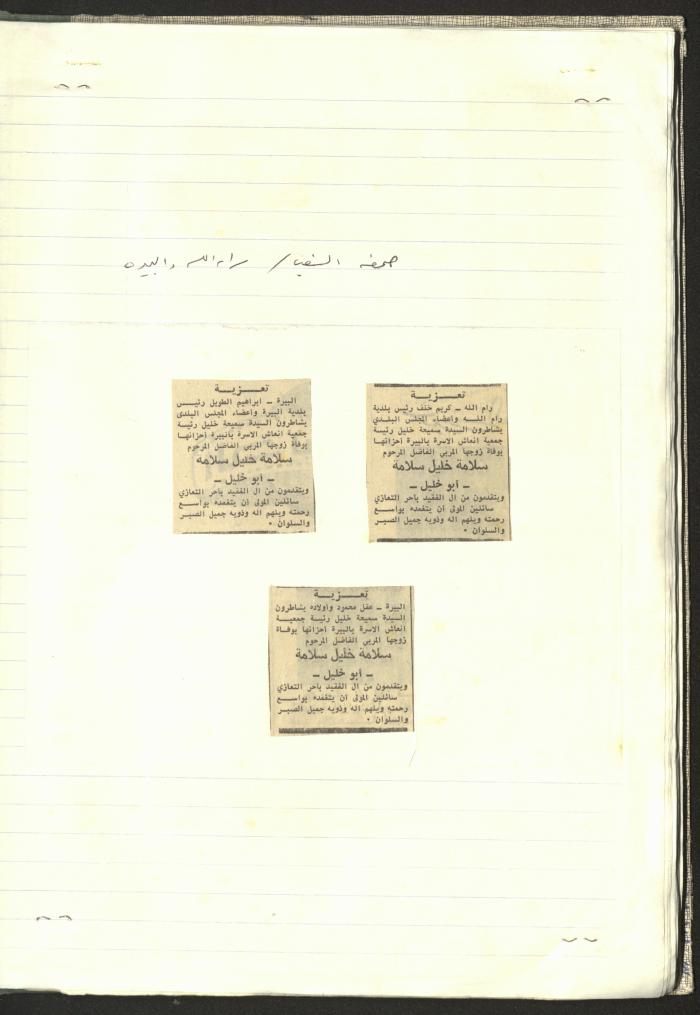 صحيفة الشعب / رام الله والبيره
تعـــزيـــة
رام الله – كريم خلف رئيس بلدية
رام اللـــه وأعضاء المجلس البلدي
يشاطرون السيدة سميحة خليل رئيسة
جمعية انعاش الاسرة بالبيرة أحزانها
بوفاة زوجها المربي الفاضل المرحوم
سلامة خليل سلامة
– أبو خليل –
ويتقدمون من ال الفقيد بأحر التعازي
سائلين المولى أن يتغمده بواســع
رحمته ويلهم اله وذويه جميل الصبر
والسلوان •
تعـــزيـــة
البيرة – ابراهيم الطويل رئيــس
بلدية البيرة وأعضاء المجلس البلدي
يشاطرون السيدة سميحة خليل رئيسة
جمعية انعاش الاسرة بالبيرة أحزانهـا
بوفاة زوجها المربي الفاضل المرحوم
سلامة خليل سلامة
– أبو خليل –
ويتقدمون من ال الفقيد بأحر التعازي
سائلين المولى أن يتغمده بواســع
رحمته ويلهم اله وذويه جميل الصبـر
والسلوان •
تعـــزيـــة
البيرة – عقل محمود وأولاده يشاطرون
السيدة سميحة خليل رئيسة جمعيـــة
انعاش الاسرة بالبيرة أحزانها بوفـاة
زوجها المربي الفاضل المرحوم
سلامة خليل سلامة
– أبو خليل –
ويتقدمون من ال الفقيد بأحر التعازي
سائلين المولى أن يتغمده بواســع
رحمته ويلهم اله وذويه جميل الصبـر
والسلوان •